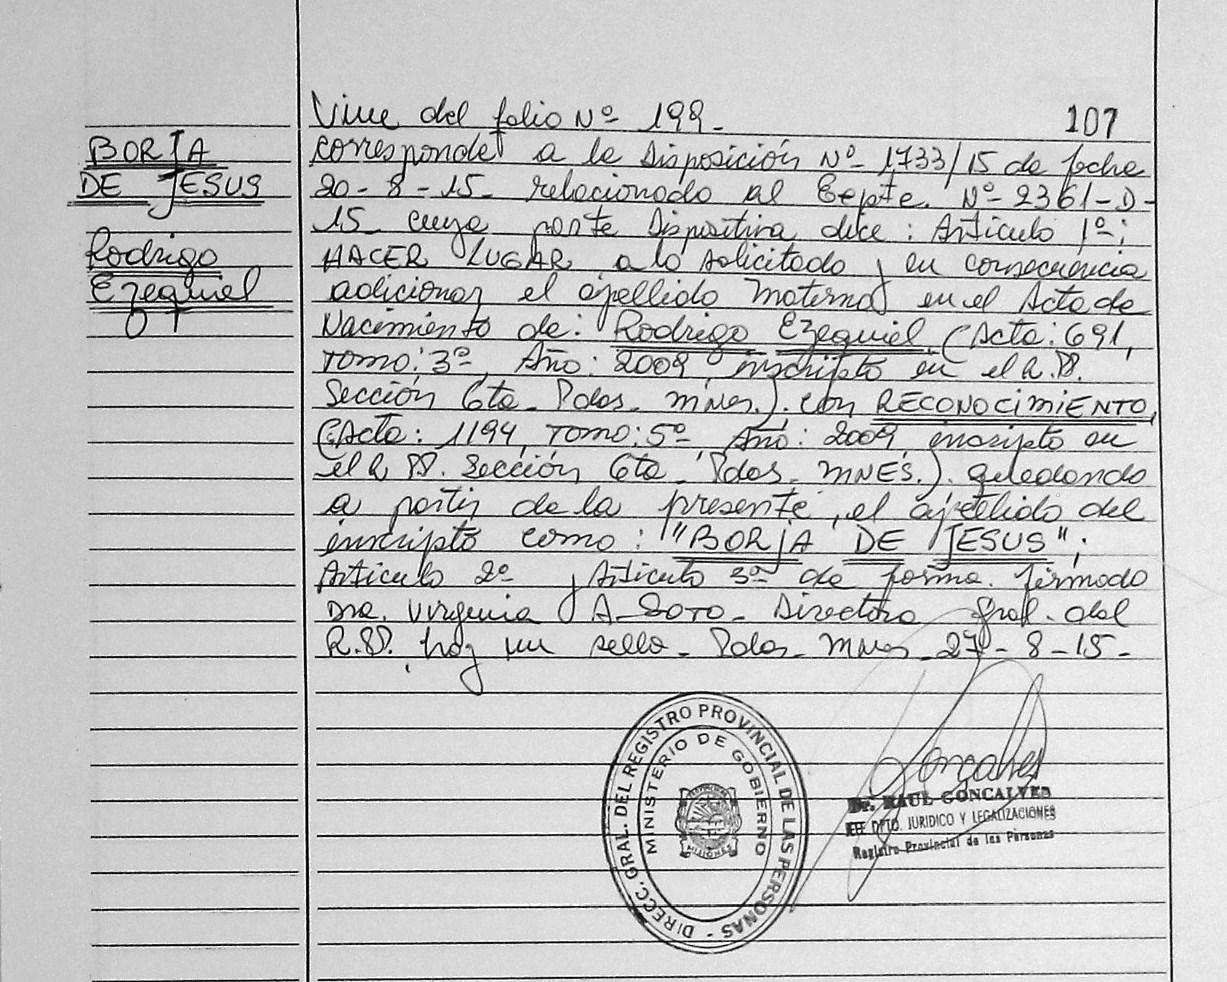 Viene del folio Nº 199-
107
BORJA
DE JESUS
Rodrigo
Ezequiel
corresponde a la Disposición Nº 1733/15 de fecha
20-8-15- relacionado al Expte. Nº 2361-D-
15- cuya parte Dispositiva dice: Artículo 1º:
HACER LUGAR a lo solicitado y en consecuencia
adicionar el apellido materno en el Acta de
Nacimiento de: Rodrigo Ezequiel, (Acta: 691,
Tomo: 3º, Año: 2009 inscripto en el R.P.
Sección 6ta- Pdas- Mnes.). con RECONOCIMIENTO,
(Acta: 1194, Tomo: 5º- Año: 2009, inscripto en
el R.P. Sección 6ta- Pdas- MNES.). quedando
a partir de la presente, el apellido del
inscripto como: "BORJA DE JESUS";
Artículo 2º y Artículo 3º de forma. firmado
Dra. Virginia A- SOTO- Directora Gral. del
R.P. hay un sello- Pdas- Mnes- 27-8-15-
DIRECC. GRAL. DEL REGISTRO PROVINCIAL DE LAS PERSONAS -
MINISTERIO DE GOBIERNO
MISIONES
Goncalves
Dr. RAUL GONCALVES
JEFE DPTO. JURIDICO Y LEGALIZACIONES
Registro Provincial de las Personas